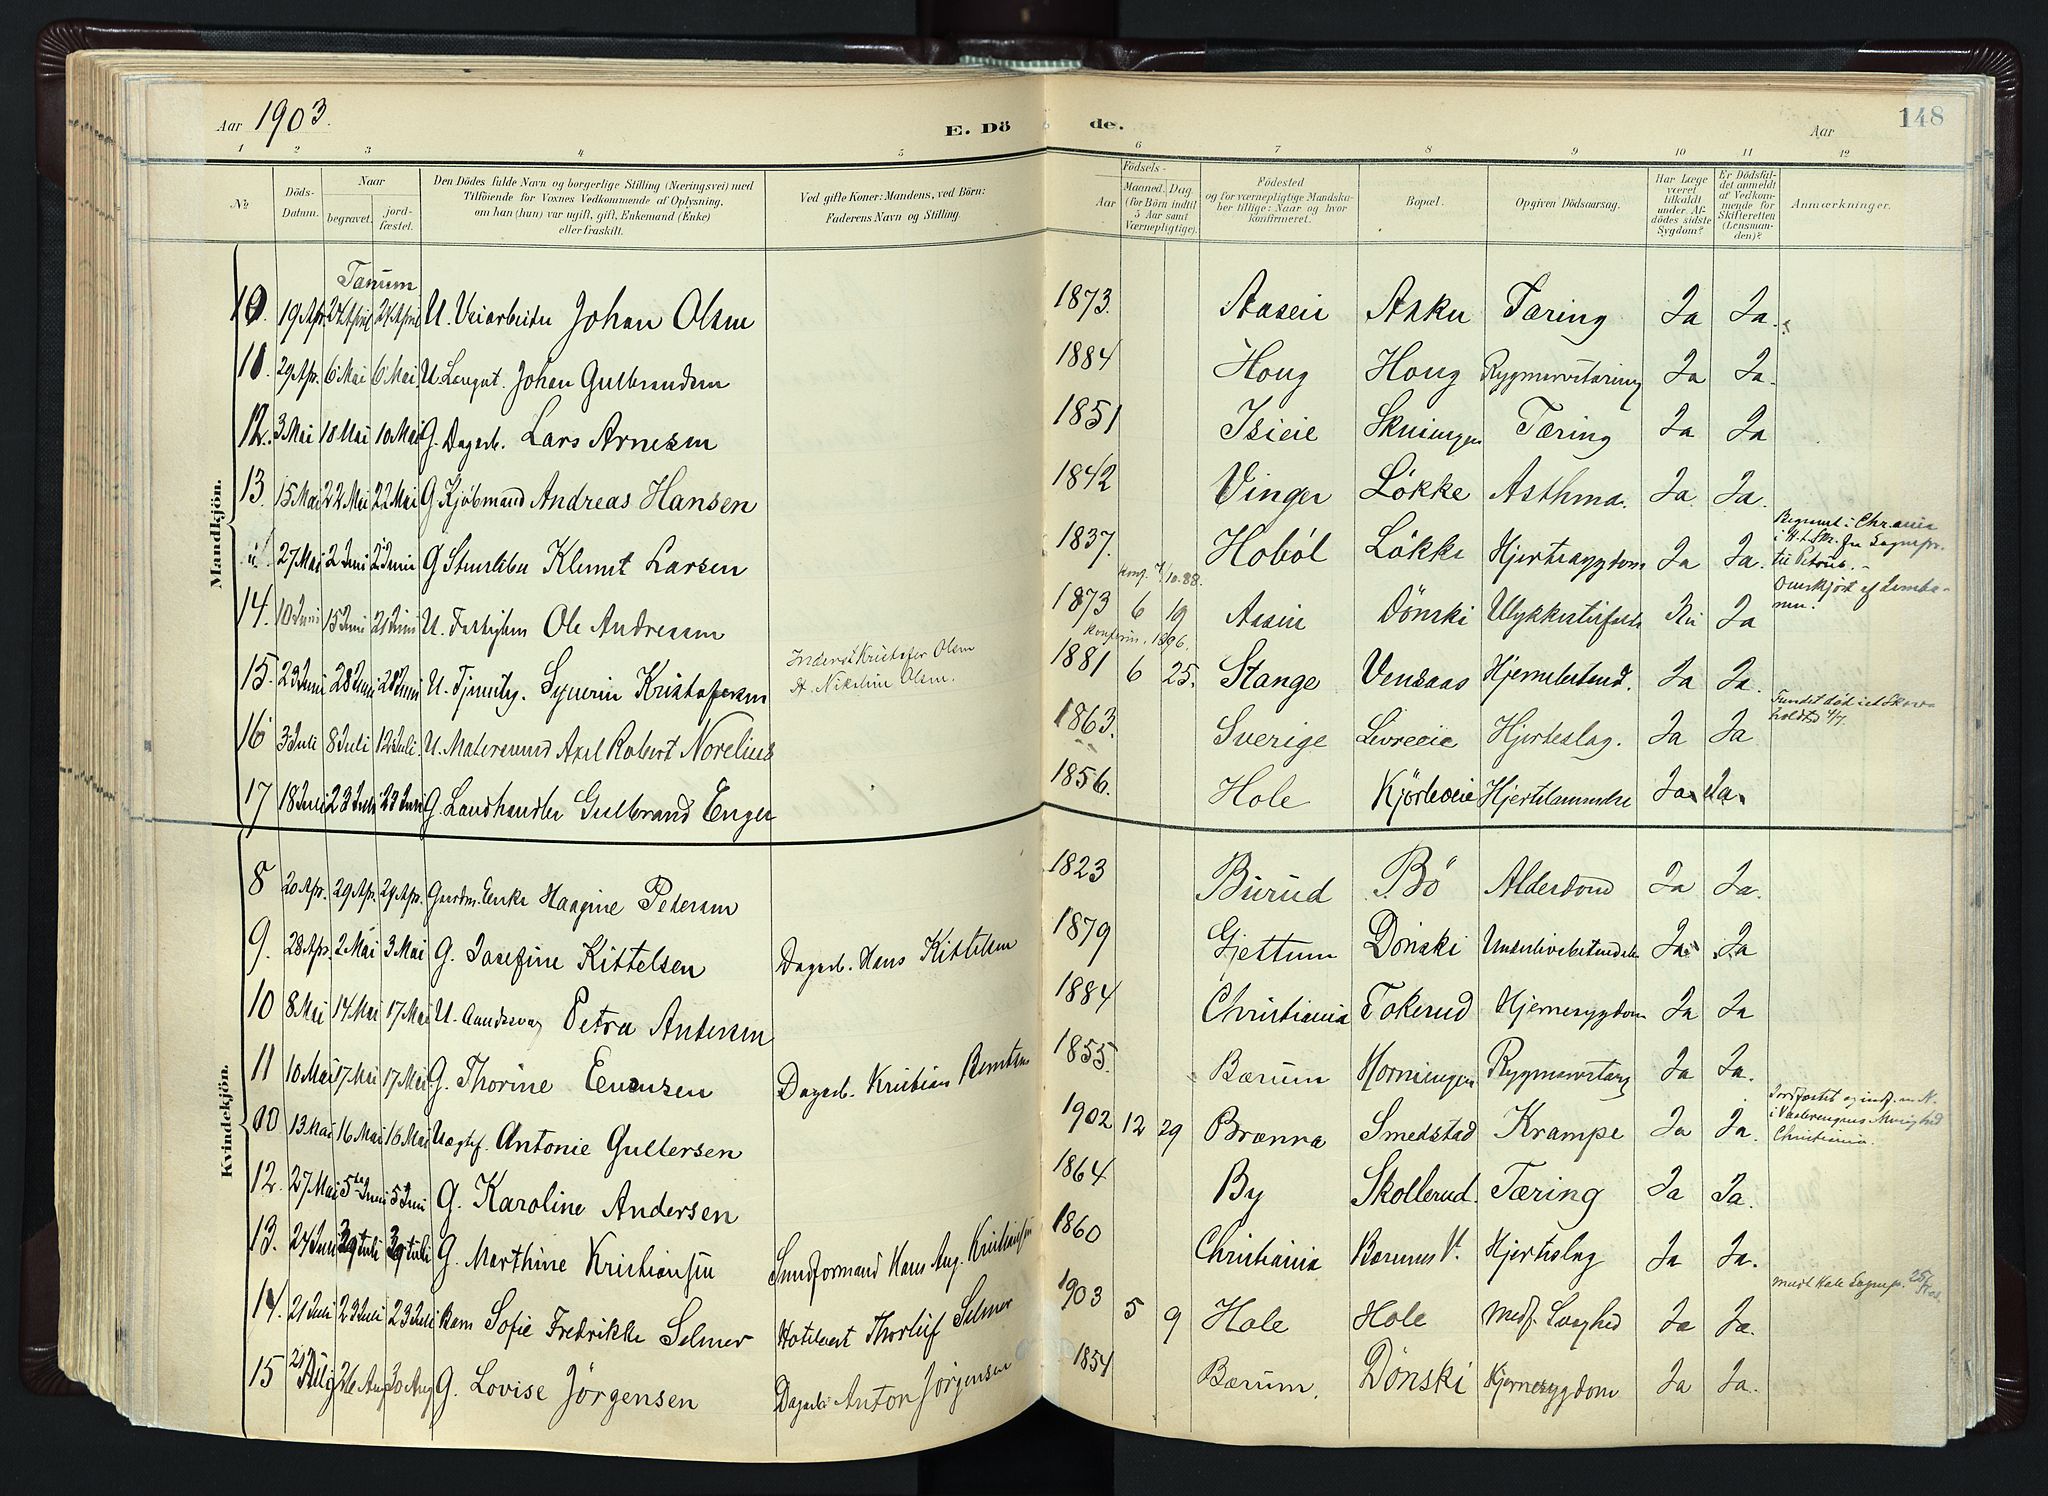 Aar 1903.
E. Dö de.
Aar 148
1 2 3 4 5 6 7 8 9 10 11 12
№
Döds-Datum.
Naar
begravet.
jord-fæstet.
Den Dödes fulde Navn og borgerlige Stilling (Næringsvei) med
Tilföiende for Voxnes Vedkommende af Oplysning,
om han (hun) var ugift, gift, Enkemand (Enke)
eller fraskilt.
Ved gifte Koner: Mandens, ved Börn:
Faderens Navn og Stilling.
Födsels-
Aar
Maaned. Dag.
(for Börn indtil
5 Aar samt
Værnepligtige).
Födested
og for værnepligtige Mandska-
ber tillige: Naar og hvor
konfirmeret.
Bopæl.
Opgiven Dödsaarsag.
Har Læge
været
tilkaldt
under Af-
dödes sidste
Sygdom?
Er Dödsfal-
det anmeldt
af Vedkom-
mende for
Skifteretten
(Lensman-
den)?
Anmærkninger.
Mandkjön.
Tanum
10. 19 Apr. 24 April 24 April U. Veiarbeider Johan Olsen 1873. Aaseie Asker Tæring Ja Ja.
11. 29 Apr. 6 Mai 6 Mai U. Johan Gulbrandsen 1884 Houg Houg Rygmarvstæring Ja Ja.
12. 3 Mai 10 Mai 10 Mai G. Dagarb. Lars Arnesen 1851 Isieie Tæring Ja Ja
13. 15 Mai 22 Mai 22 Mai G Kjöbmand Andreas Hansen 1842 Vinger Lökke Asthma. Ja Ja.
27 Mai 2 Juni 2 Juni G Klemet Larsen 1837. Hoböl Lökke Hjertesygdom Ja Ja.
Begravet i Chr.ania
til Petrus.
konf. 7/10.88.
14. 10 Juni 15 Juni 21 Juni U. Ole Andresen 1873 6 19 Aaseie Dönski Ulykkestilfælde Nei Ja
Overkjört af Jernba-
nen.
konfirm. 1896.
15. 23 Juni 28 Juni 28 Juni U. Syverin Kristofersen
Inderst Kristofer Olsen
1881 6 25. Stange Vensaas Hjernebetænd. Ja Ja.
16 3 Juli 8 Juli 12 Juli. U. Malersvend Axel Robert Norelius 1863. Sverige Hjerteslag. Ja Ja
Fundet död i et Skov-
holdt 4/7.
17 18 Juli 23 Juli 23 Juli G. Landhandler Gulbrand Enger 1856. Hole Kjörboeie Hjertelammelse Ja Ja
Kvindekjön.
8 20 Apr. 29 Apr. 29 Apr. Gaardm. Enke Haagine Petersen 1823 Burud Bö Alderdom Ja Ja.
9. 28 Apr. 2 Mai 3 Mai G. Josefine Kittelsen Dagarb. Hans Kittelsen 1879 Gjettum Dönski Underlivsbetændelse Ja Ja
10 8 Mai 14 Mai 17 Mai U. Aandssvag Petra Andersen 1884 Christiania Tokerud Hjernesygdom Ja Ja
11 10 Mai 17 Mai 17 Mai G. Thorine Evensen Dagarb. Kristian Berntsen 1855. Bærum Horningen Rygmarvstæring Ja Ja.
13 Mai 16 Mai 16 Mai Uægtef. Antonie Gullersen 1902 12 29 Brænna Smedstad Krampe Ja Ja.
Jordfæstet
i Vaalerengens Menighed
Christiania.
12. 27 Mai 5te Juni 5 Juni G. Karoline Andersen 1864 By Skollerud. Tæring Ja Ja.
13. 24 Juni G. Marthine Kristiansen Hans Aug. Kristiansen 1860 Christiania Bærums V. Hjerteslag Ja Ja.
14. 21 Juli 23 Juli 23 Juli Barn Sofie Fredrikke Selmer Hotelvert Thorleif Selmer 1903 5 9 Hole Hole Medf. Svaghed Ja Ja.
15 26 Aug 30 Aug G. Lovise Jörgensen Dagarb. Anton Jörgensen 1854 Bærum. Dönski Hjernesygdom Ja Ja.